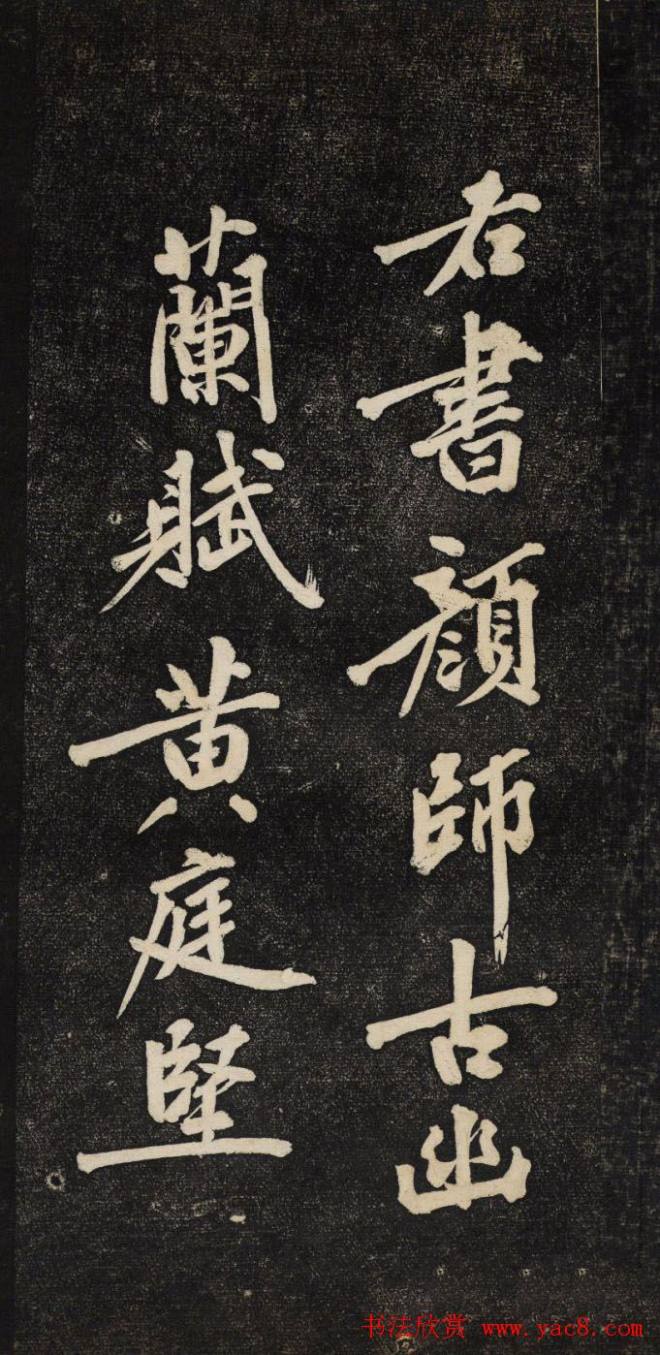 右書顔師古幽
蘭賦黄庭堅
书法欣赏 www.yac8.com